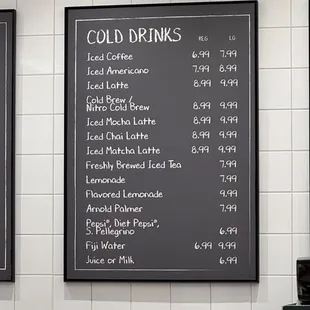 COLD DRINKS REG LG
Iced Coffee 6.99 7.99
Iced Americano 7.99 8.99
Iced Latte 8.99 9.99
Cold Brew /
Nitro Cold Brew 8.99 9.99
Iced Mocha Latte 8.99 9.99
Iced Chai Latte 8.99 9.99
Iced Matcha Latte 8.99 9.99
Freshly Brewed Iced Tea 7.99
Lemonade 7.99
Flavored Lemonade 9.99
Arnold Palmer 7.99
Pepsi®, Diet Pepsi®,
S. Pellegrino 6.99
Fiji Water 6.99 9.99
Juice or Milk 6.99